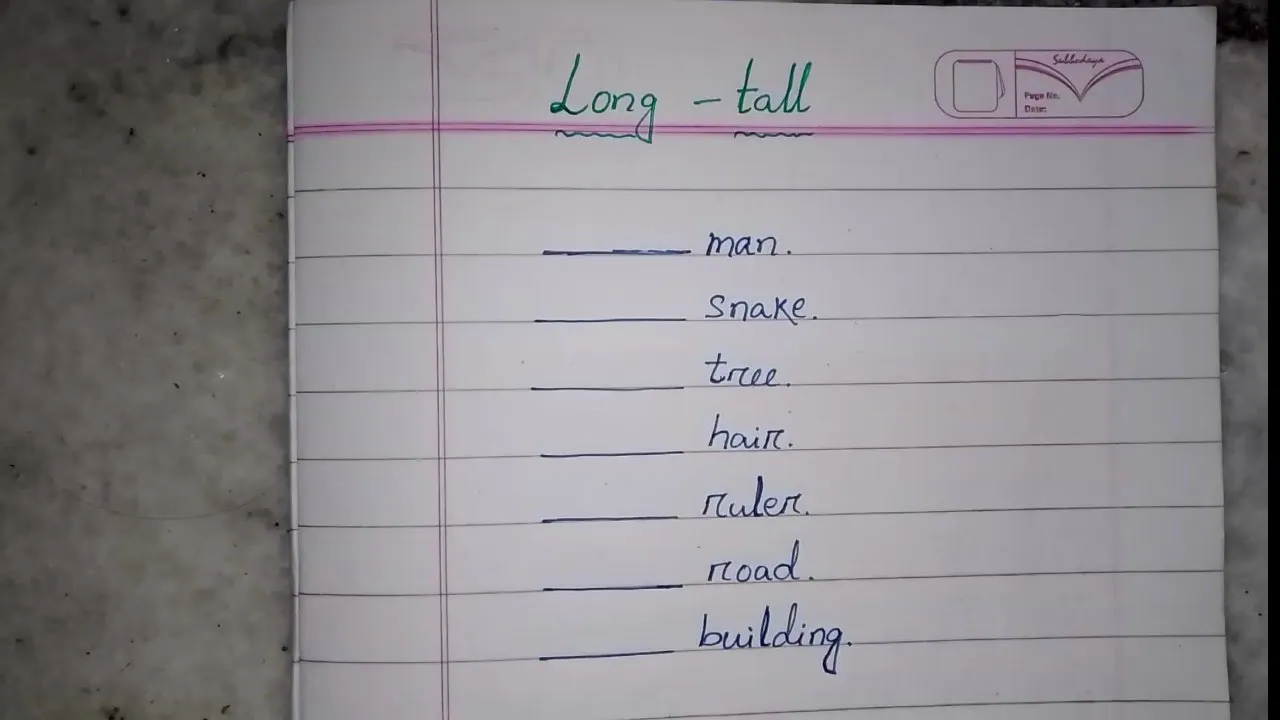 Long - tall
Subhodaya
Page No.
Date:
______ man.
______ snake.
______ tree.
______ hair.
______ ruler.
______ road.
______ building.